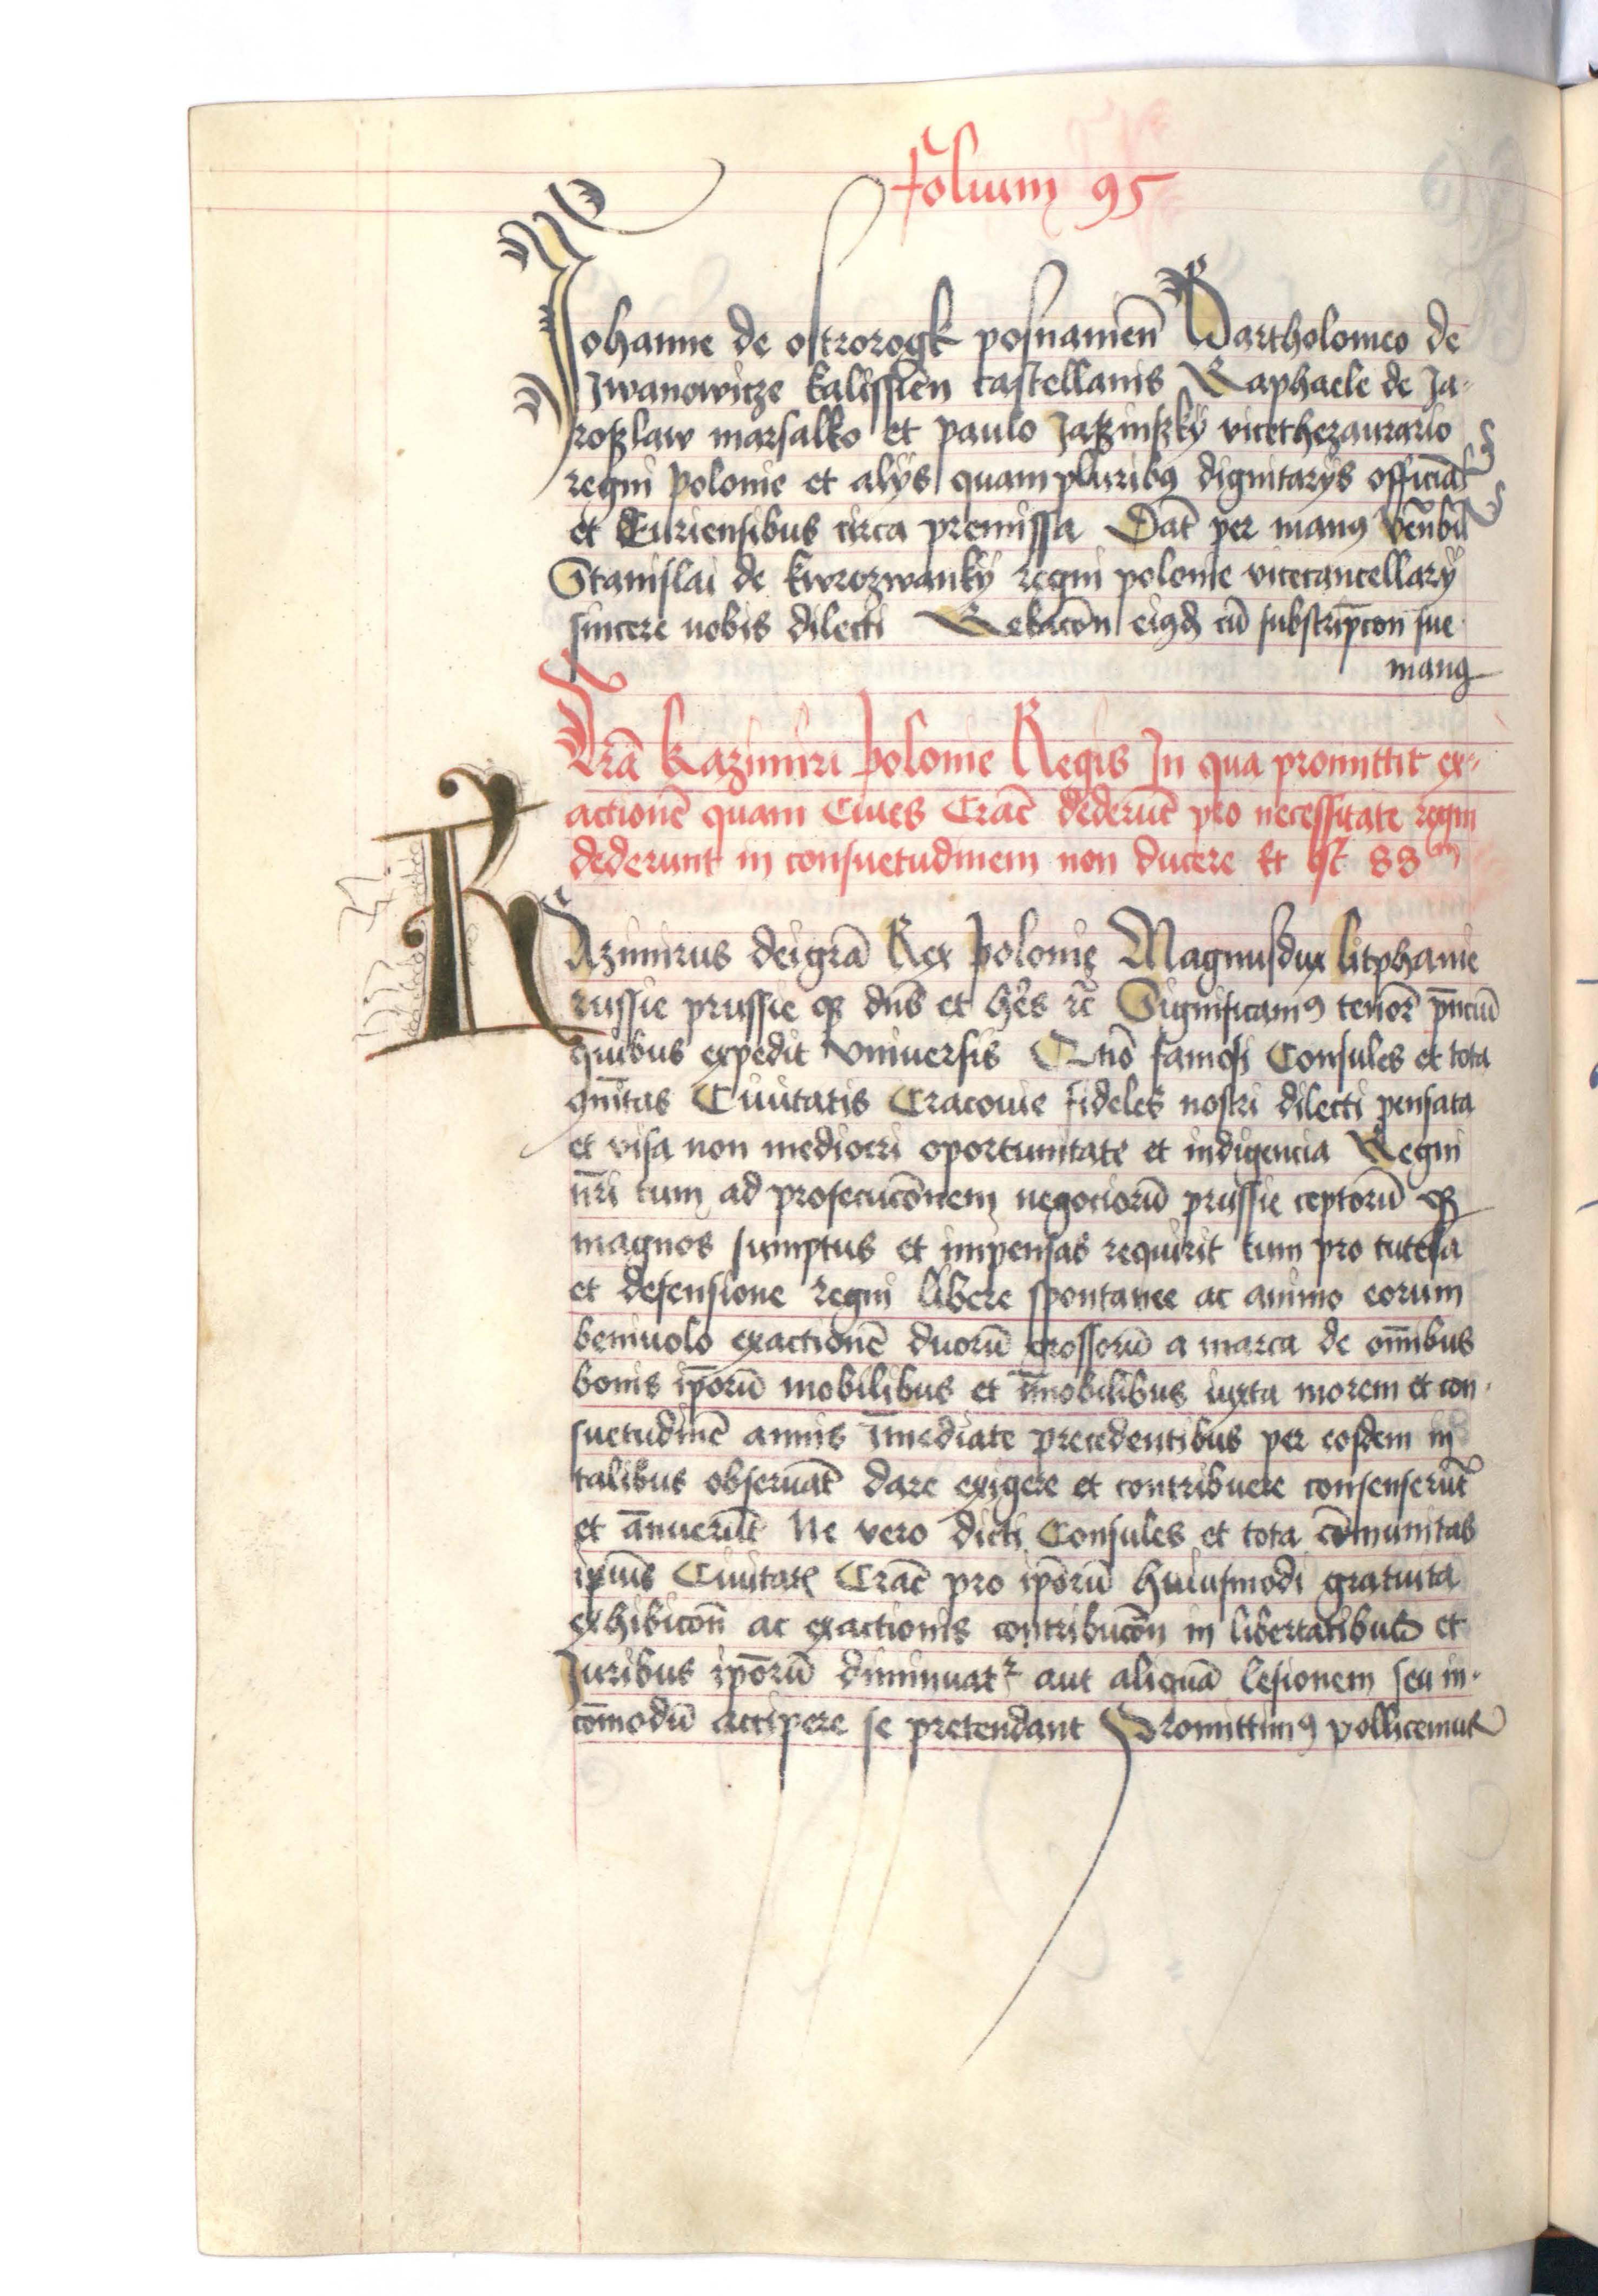 folium 95
Johanne de ostrorogk posnamen̄ Bartholomeo de
Iwanowicze kalissien̄ castellanis Raphaele de Ja-
roszlaw marsalko et paulo Jaszinszkÿ vicethezaurario
regni Polonie et alÿs quampluribꝫ dignitarÿs officiał
et Curiensibus circa premissa Dat̄ per manꝰ ven̄bil̄
Stanislai de kwrozwankÿ regni polonie vicecancellarÿ
sincere nobis dilecti Relac̄on eiꝰd cū substripc̄on sue
manꝰ
Lrā kazimiri Polonie Regis In qua promittit ex-
actionē quam Ciues Crac̄ dederūt pro necessitate regni
dederunt in consuetudinem non ducere Et est 88
KAzimirus dei grā Rex Polonie Magnus dux litphanie
russie prussie qꝫ dn̄s et her̄s rc̄ Significamꝰ tenore p̄nciū
quibus expedit vniuersis Quō famosi Consules et tota
ꝯmūitas Ciuitatis Cracouie fideles nostri dilecti pensata
et visa non mediocri oportunitate et indigencia Regni
nr̄i tum ad prosecuc̄onem negociorū prussie ceptorū qꝫ
magnos sumptus et impensas requirit tum pro tutela
et defensione regni libere spontanee ac animo eorum
beniuolo exactionē duorū grossorū a marca de om̄ibus
bonis ip̄orū mobilibus et īmobilibus iuxta morem et con-
suetudinē annis īmediate precedentibus per eosdem in
talibus obseruat̄ dare exigere et contribuere consenserūt
et ānuerūt Ne vero dicti Consules et tota cōmunitas
ipsius Ciuitatꝭ Crac̄ pro ip̄orū huiusmodi gratuita
exhibicon̄ ac exactionis contribuc̄on in libertatibus et
Juribus ip̄orū diminuatr aut aliquā lesionem seu in-
cōmodū accipere se pretendant Promittimꝰ pollicemur